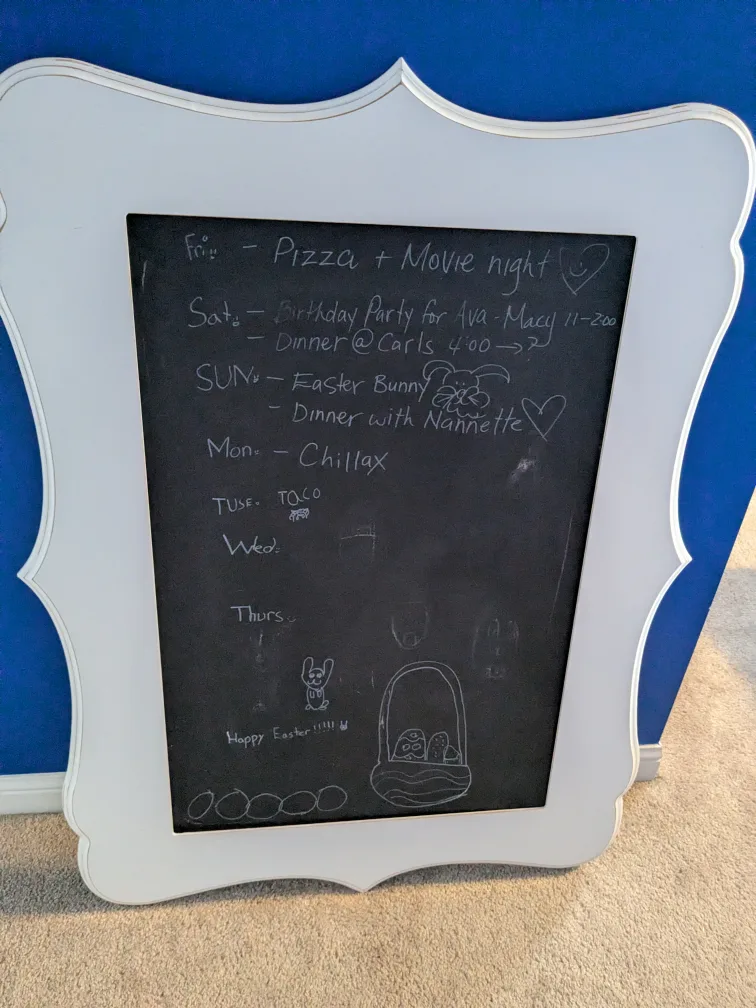 Fri: - Pizza + Movie night
Sat: - Birthday Party for Ava - Macy 11-2:00
- Dinner @ Carls 4:00 → ?
SUN: - Easter Bunny
- Dinner with Nannette
Mon: - Chillax
TUSE: TACO
Wed:
Thurs:
Happy Easter!!!!!